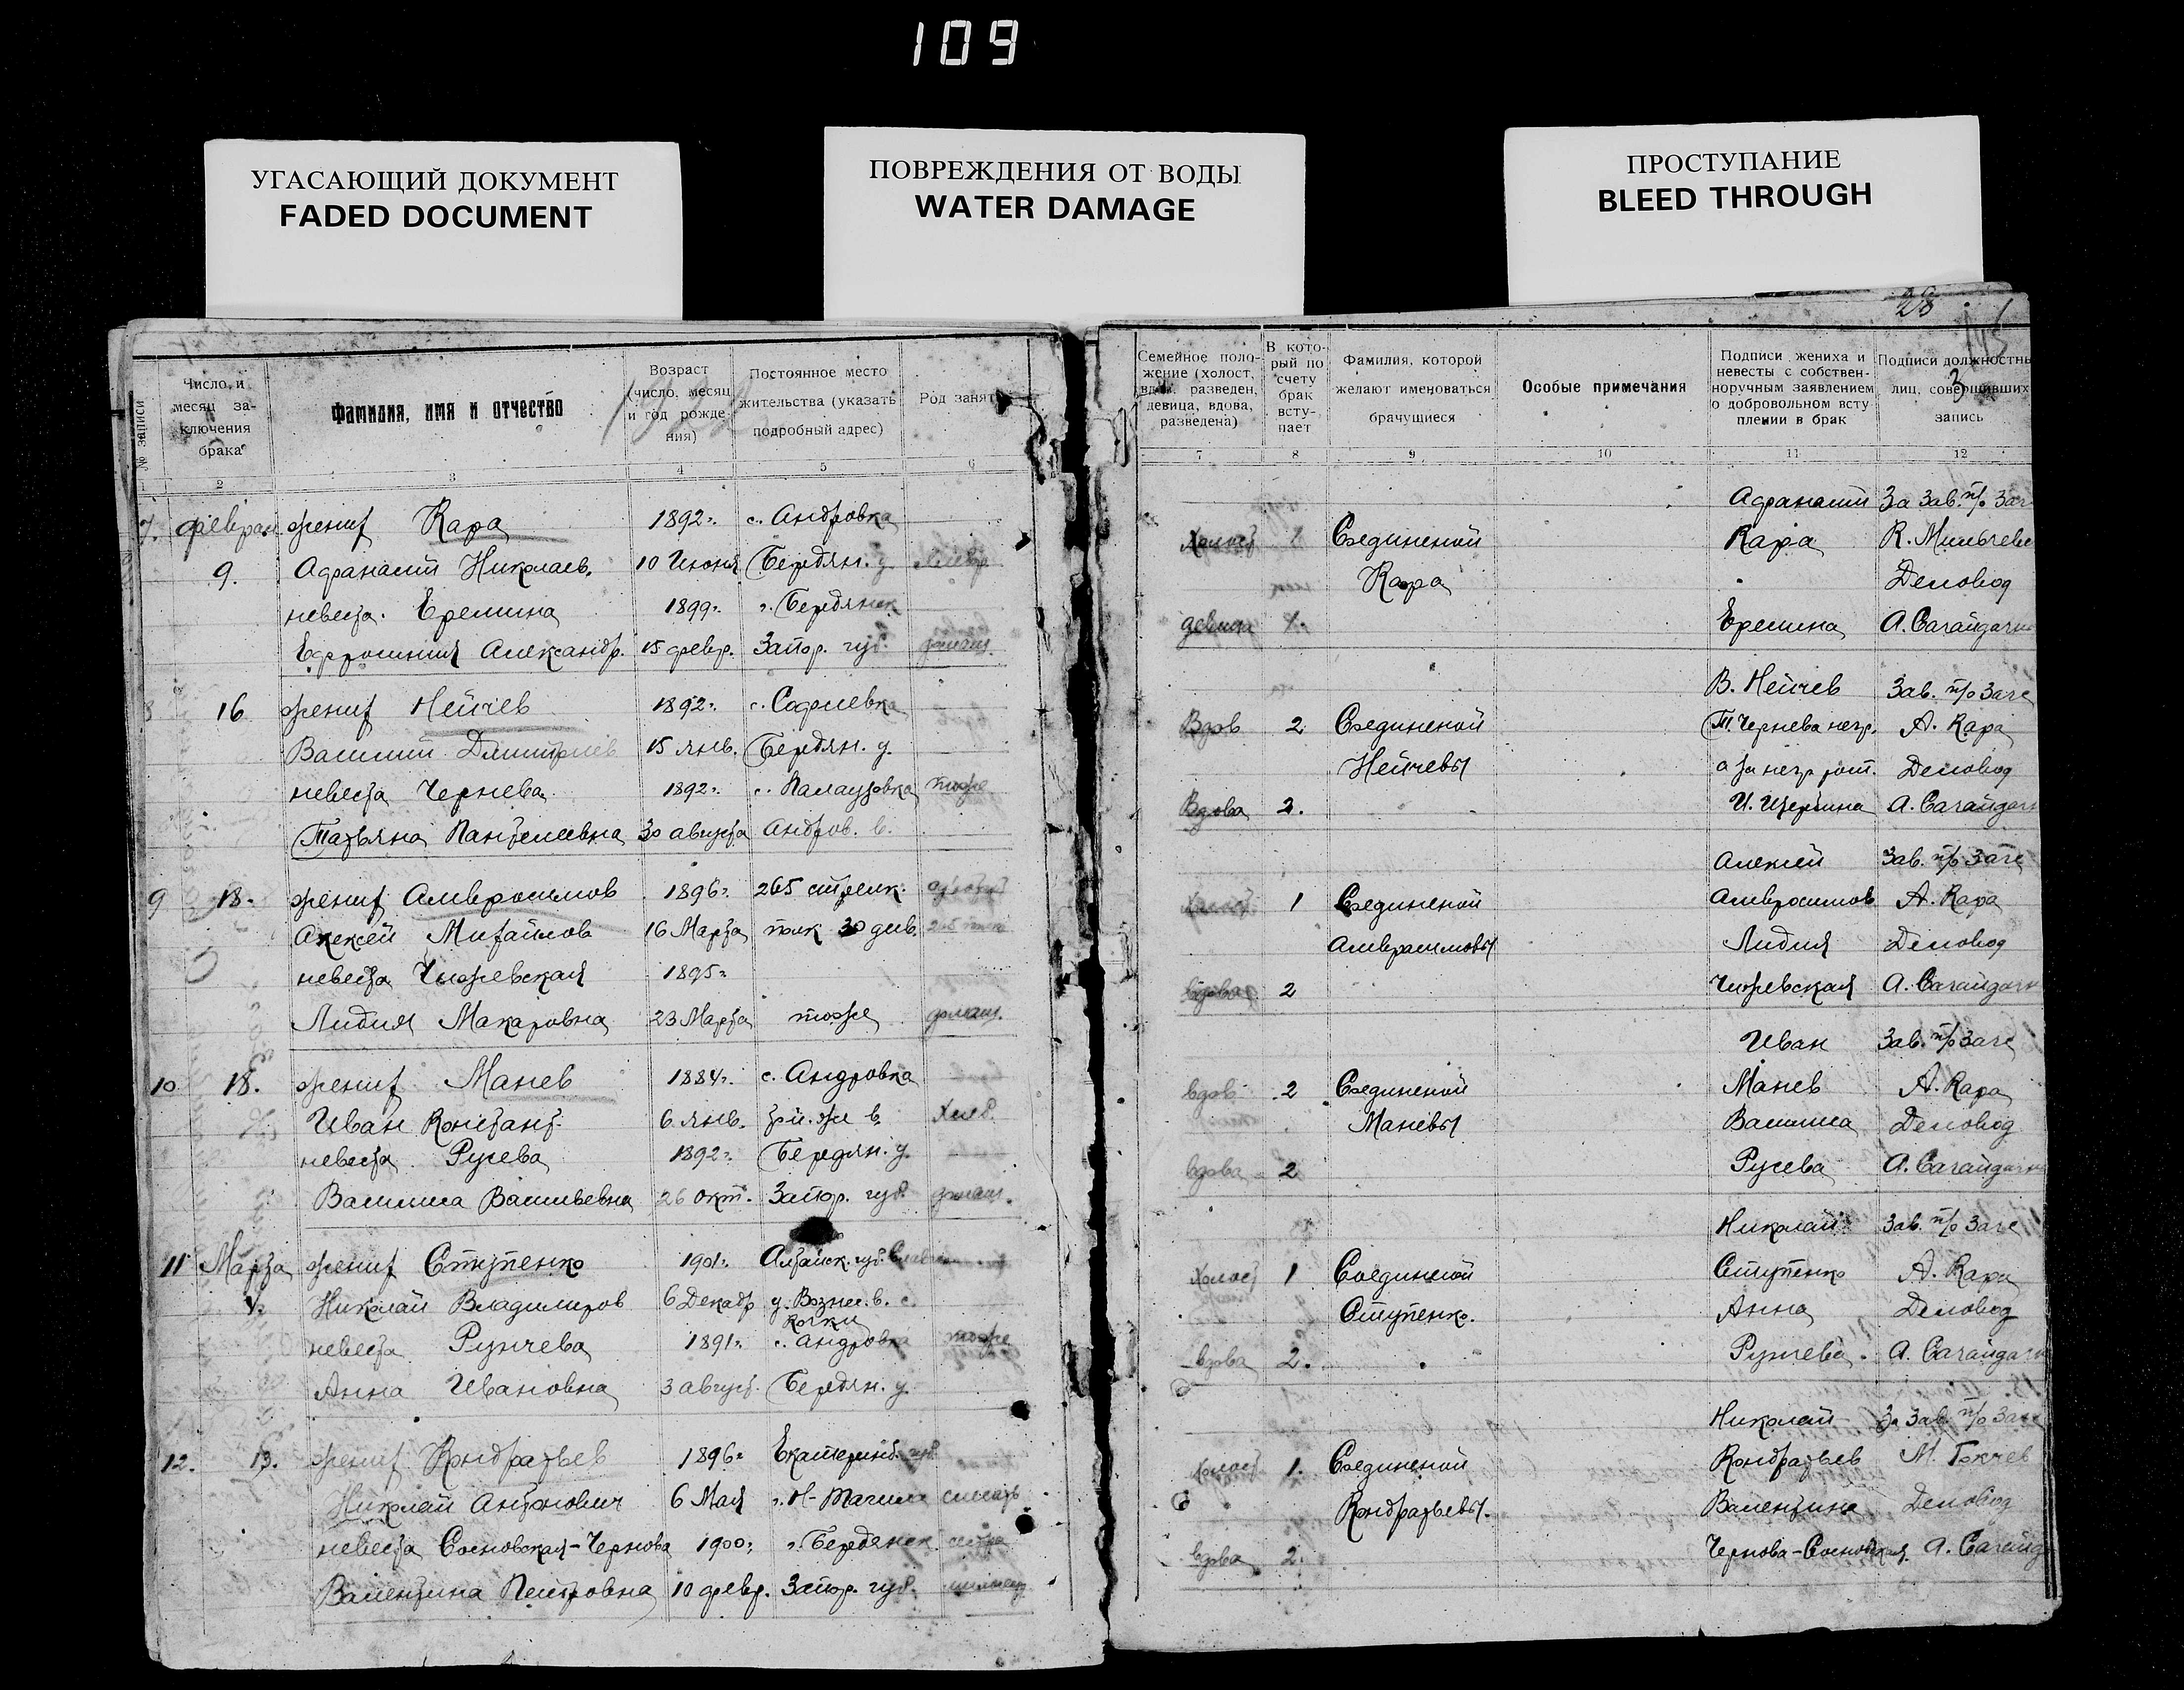 109
УГАСАЮЩИЙ ДОКУМЕНТ
FADED DOCUMENT
ПОВРЕЖДЕНИЯ ОТ ВОДЫ
WATER DAMAGE
ПРОСТУПАНИЕ
BLEED THROUGH
28
№ записи
Число и месяц заключения брака
Фамилия, имя и отчество
Возраст (число, месяц и год рождения)
Постоянное место жительства (указать подробный адрес)
Род занят
2 3 4 5 6
7. феврал жених Кара 1892г. с. Андровка
9. Афанасий Николаев. 10 Июня Бердян. у.
невеста. Еремина 1899г. г. Бердянск
Ефросиния Александр. 15 февр. Запор. губ. домаш.
8 16 жених Нейчев 1892г. с. Софиевка
Василий Дмитриев 15 янв. Бердян. у.
невеста Чернева 1892г. с. Палаузовка тоже
Татьяна Пантелеевна 30 августа Андров. в.
9 18. жених Амвросимов 1896г. 265 стрелк.
Алексей Михайлов 16 Марта полк 30 див.
невеста Чыжевская 1895г.
Лидия Макаровна 23 Марта тоже домаш.
10 18. жених Манев 1884г. с. Андровка
Иван Констант. 6. янв. той-же в. Хлеб
невеста Русева 1892г. Бердян. у.
Василиса Васильевна 26 окт. Запор. губ. домаш.
11 Марта жених Ступенко 1901г. Алтайск. губ.
4. Николай Владимиров 6 Декабр у. Возне. в. с.
Кочки
невеста Рунчева 1891г. с. Андровка тоже
Анна Ивановна 3 август. Бердян. у.
12. 13. жених Кондратьев 1896г. Екатеринб. губ.
Николай Антонович 6 Мая г. Н-Тагил
невеста Сосновская-Чернова 1900г. г. Бердянск
Валентина Петровна 10 февр. Запор. губ.
Семейное положение (холост, вдов, разведен, девица, вдова, разведена)
В который по счету брак вступает
Фамилия, которой желают именоваться брачущиеся
Особые примечания
Подписи жениха и невесты с собственноручным заявлением о добровольном вступлении в брак
Подписи должностны лиц, совершивших запись
7 8 9 10 11 12
Афанасий За Зав. п/о Заг
Холост 1 Соединеной Кара К. Мильчев
Кара Деловод
девица 1. Еремина А. Сагайдач
В. Нейчев Зав. п/о Заге
Вдов 2 Соединеной Т. Чернева негр. А. Кара
Нейчевы а за негр. рост. Деловод
Вдова 2. А. Сагайдач
Алексей Зав. п/о Заге
Холост 1 Соединеной Амвросимов А. Кара
Амвросимовы Лидия Деловод
вдова 2 Чижевская А. Сагайдач
Иван Зав. п/о Заге
вдов 2 Соединеной Манев А. Кара
Маневы Василиса Деловод
вдова 2 Русева А. Сагайдач
Николай Зав. п/о Заге
Холост 1 Соединеной Ступенко А. Кара
Ступенко. Анна Деловод
вдова 2. Рунчева. А. Сагайдач
Николай За Зав. п/о Заге
Холост 1. Соединеной Кондратьев М. Гокчев
Кондратьевы. Валентина Деловод
вдова 2. Чернова-Сосновская. А. Сагайд